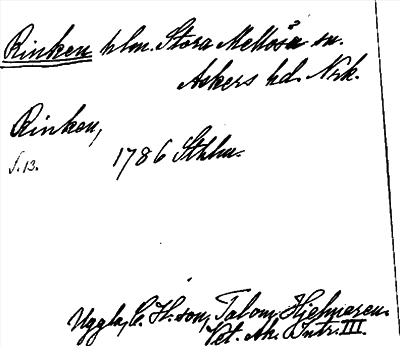 Rinken hlm. Stora Mellösa sn.
Askers hd. Nrk.
Rinken,
s. 13. 1786 Sthlm.
Uggla, C. H:son, Tal om Hjelmaren.
Vet. Ak. Intr. III.